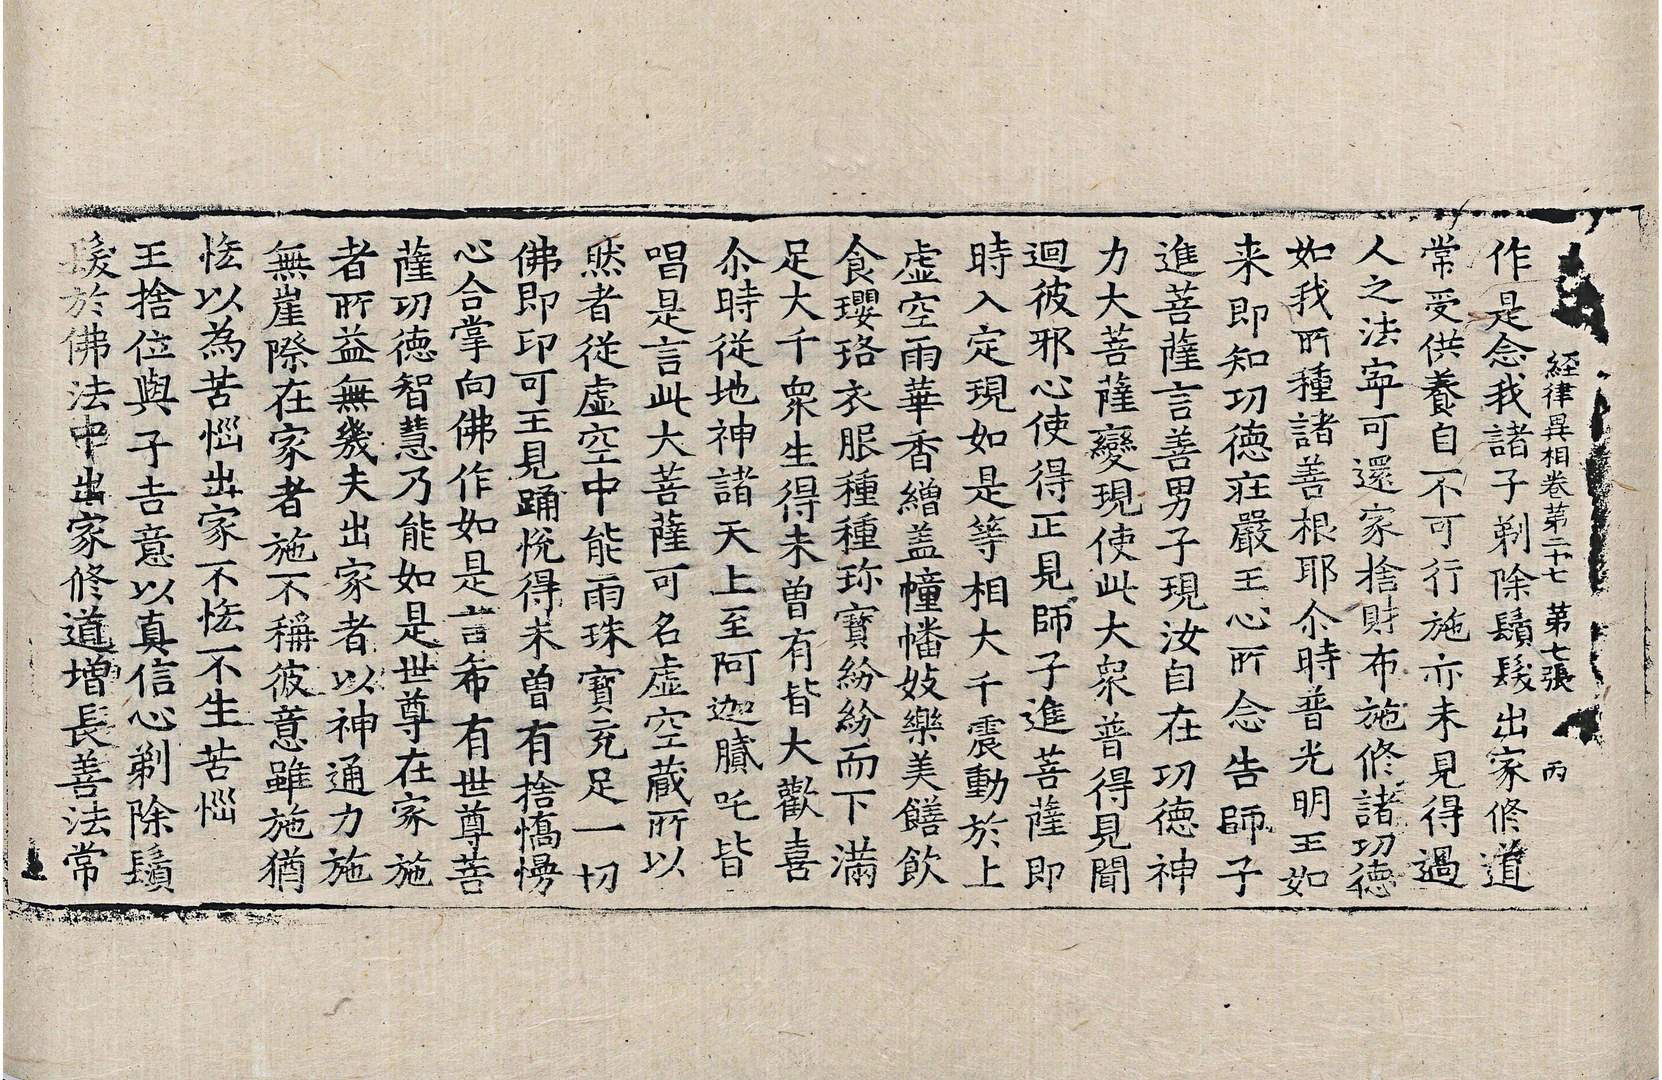 經律異相卷第二十七 第七張 丙
作是念我諸子剃除鬚髮出家修道
常受供養自不可行施亦未見得過
人之法寧可還家捨財布施修諸功德
如我所種諸善根耶尒時普光明王如
来即知功德莊嚴王心所念告師子
進菩薩言善男子現汝自在功德神
力大菩薩變現使此大衆普得見聞
迴彼邪心使得正見師子進菩薩即
時入定現如是等相大千震動於上
虛空雨華香繒盖幢幡妓樂美饍飲
食瓔珞衣服種種珎寶紛紛而下滿
足大千衆生得未曾有皆大歡喜
尒時從地神諸天上至阿迦膩吒皆
唱是言此大菩薩可名虛空藏所以
然者從虛空中能雨珠寶充足一切
佛即印可王見踊悅得未曾有捨憍慢
心合掌向佛作如是言希有世尊菩
薩功德智慧乃能如是世尊在家施
者所益無幾夫出家者以神通力施
無崖際在家者施不稱彼意雖施猶
恡以為苦惱出家不恡不生苦惱
王捨位與子吉意以真信心剃除鬚
髮於佛法中出家修道增長善法常